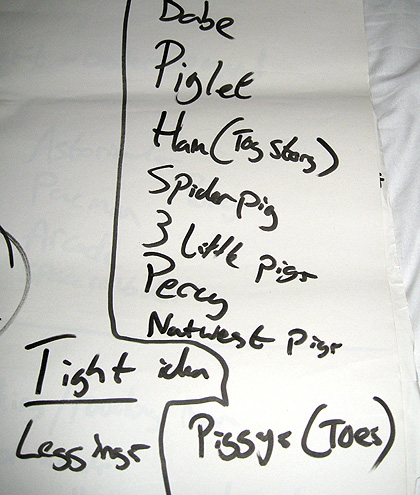 Babe
Piglet
Ham (Toy Story)
Spider pig
3 little pigs
Percy
Natwest pigs
Tight idea
Leggings
Piggys (Toes)